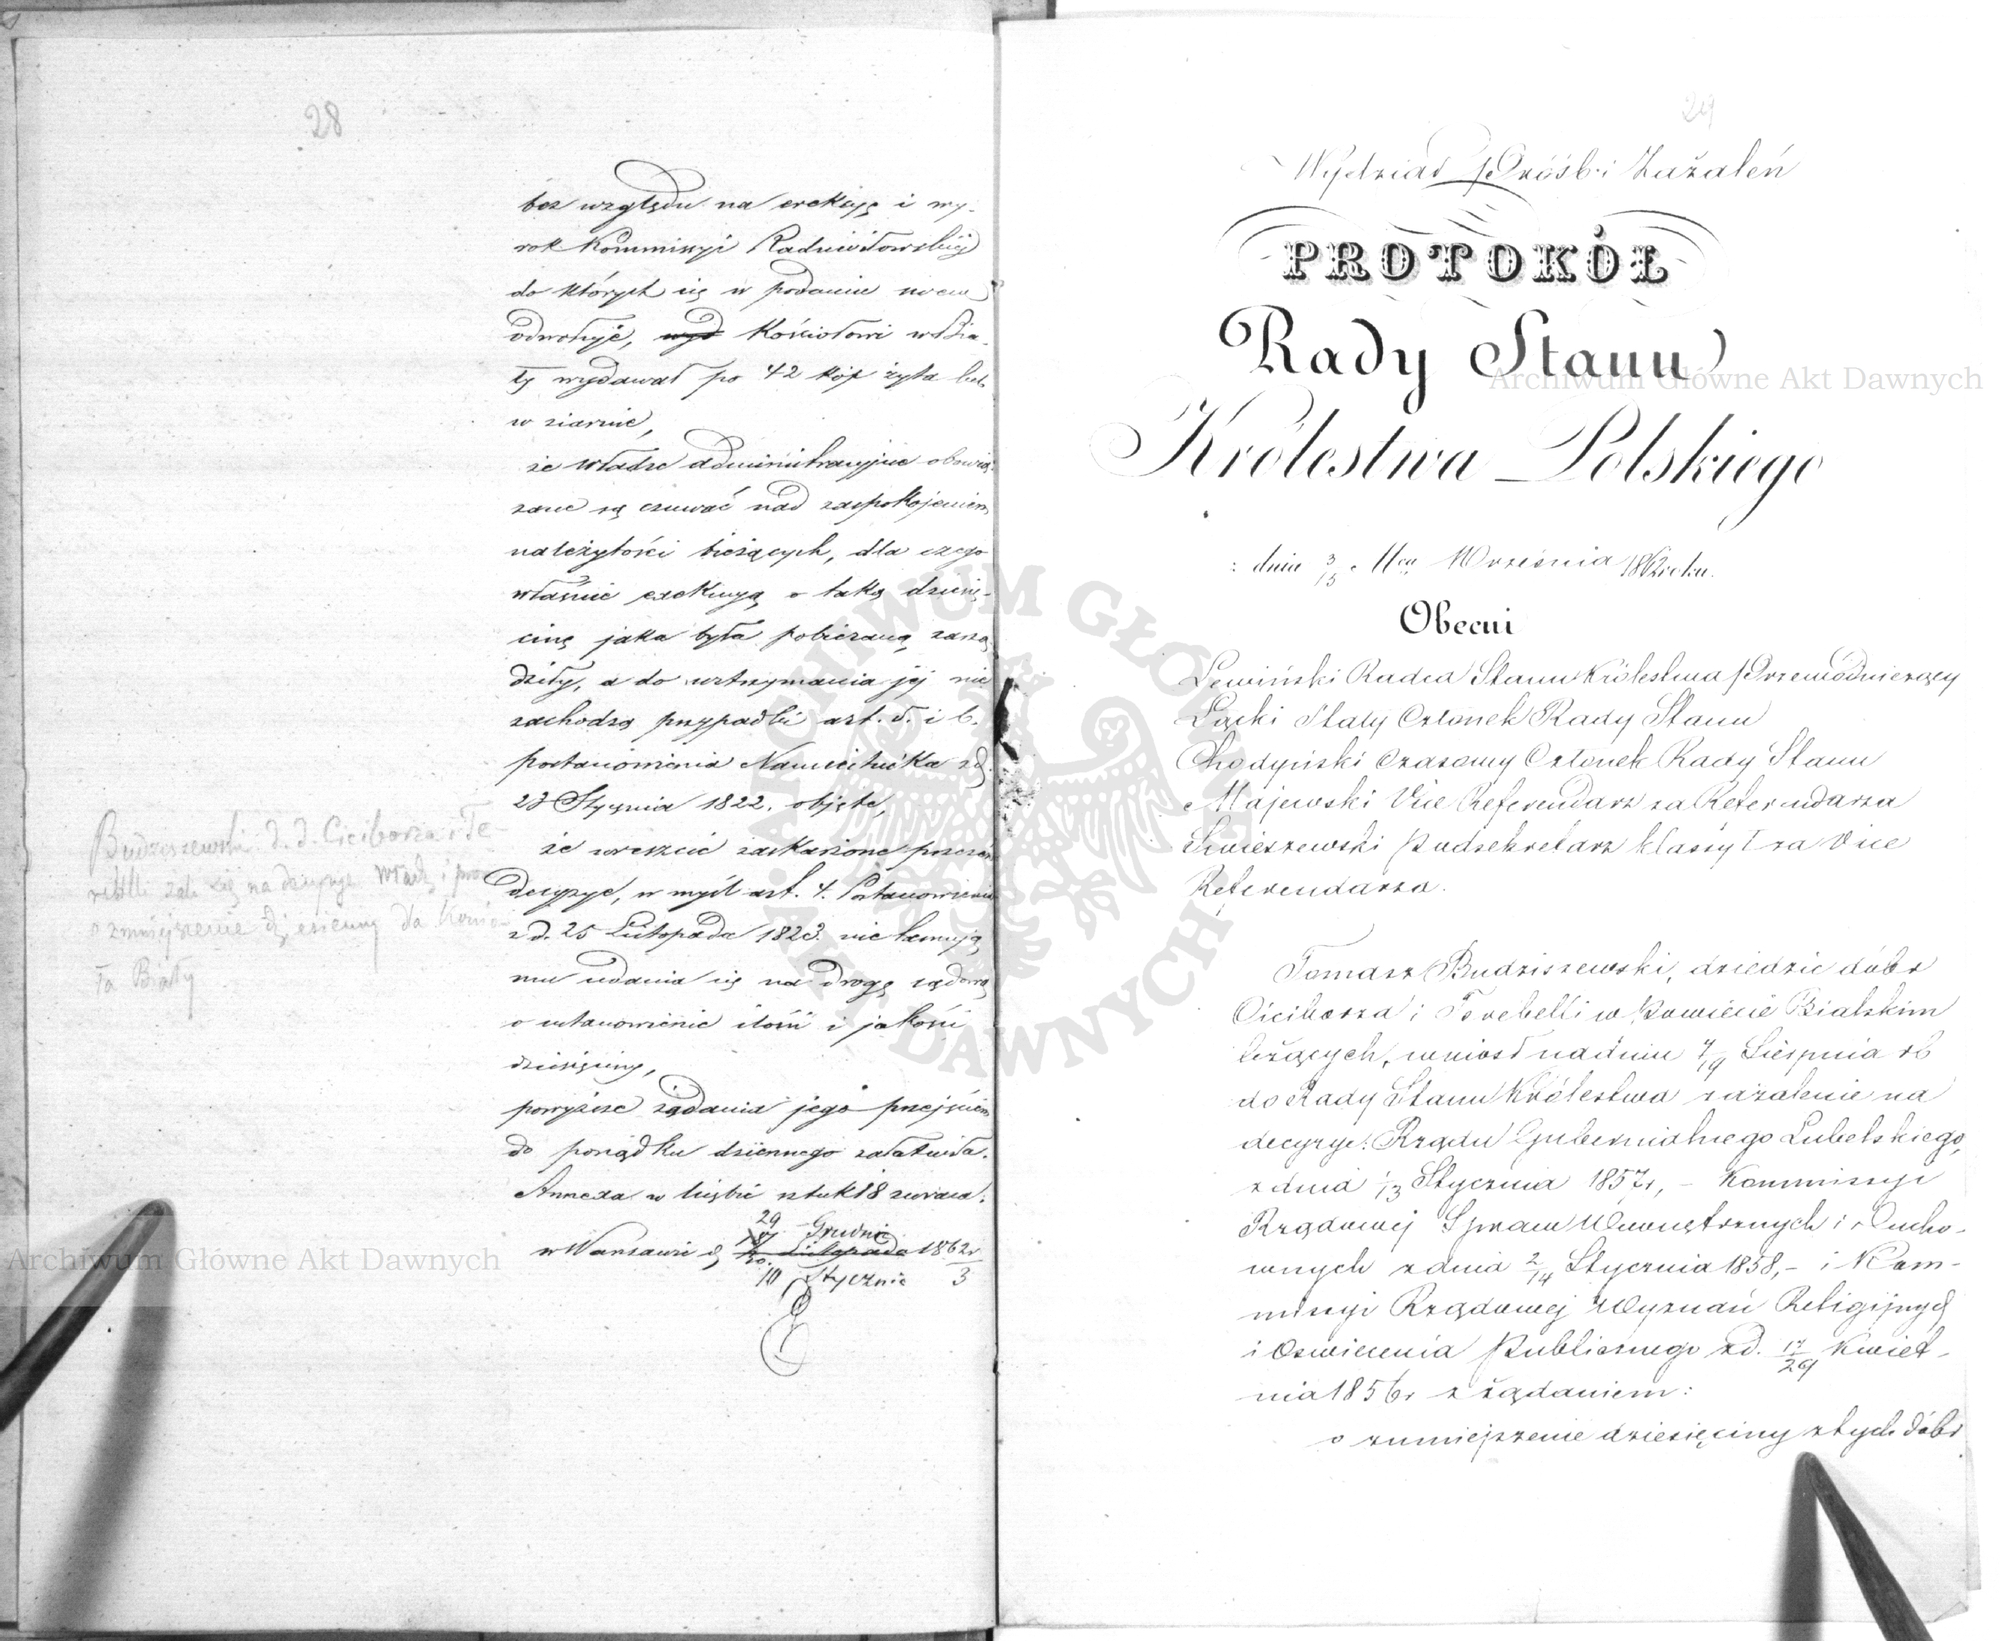 28
bez względu na erekcyę i wy-
rok Kommissyi Radziwiłłowskiej
do których się w podaniu swem
odwołuje, Kościołowi w Bia-
ły wydawał po 42 kóp żyta lub
w ziarnie,
że władze administracyjne obowią-
zane są czuwać nad zaspokojeniem
należytości bieżących, dla czego
właśnie exekucyą o taką dziesię-
cinę jaka była pobieraną zarzą-
dziły, a do wstrzymania jej nie
zachodzą przypadki art. 5. i 6.
postanowienia Namiestnika z d.
23 Stycznia 1822. objęte,
że wreszcie zaskarżone przezeń
decyzye, w myśl art. 4. Postanowienia
z d. 25 Listopada 1823. nie tamują
mu udania się na drogę sądową
o ustanowienie ilości i jakości
dziesięciny,
powyższe żądania jego przejściem
do porządku dziennego załatwiła.
Annexa w liczbie sztuk 18 zwraca.
29 Grudnia
w Warszawie d. Listopada 1862
10 Stycznia 3
Budziszewski d. d. Ciciborza i Te-
rebelli żali się na decyzye Władz i pro
o zmniejszenie dziesięciny dla Kościo
ła Biały
29
Wydział Próśb i Zażaleń
PROTOKÓŁ
Rady Stanu
Królestwa Polskiego
dnia 3/15 Mca Września 1862 roku.
Obecni
Lewiński Radca Stanu Królestwa Przewodniczący
Łącki Stały Członek Rady Stanu
Chodyński Czasowy Członek Rady Stanu
Majewski Vice Referendarz za Referendarza
Kwieszewski Podsekretarz klassy I za Vice
Referendarza.
Tomasz Budziszewski, dziedzic dóbr
Ciciborza i Terebelli w Powiecie Bialskim
leżących, wniósł na dniu 7/19 Sierpnia rb
do Rady Stanu Królestwa zażalenie na
decyzye: Rządu Gubernialnego Lubelskiego,
z dnia 1/13 Stycznia 1857 r, – Kommissyi
Rządowej Spraw Wewnętrznych i Ducho-
wnych z dnia 2/14 Stycznia 1858, – i Kom-
missyi Rządowej Wyznań Religijnych
i Oświecenia Publicznego z d. 17/29 Kwiet-
nia 1856 r z żądaniem:
o zmniejszenie dziesięciny z tych dóbr
Archiwum Główne Akt Dawnych
Archiwum Główne Akt Dawnych
ARCHIWUM GŁÓWNE AKT DAWNYCH